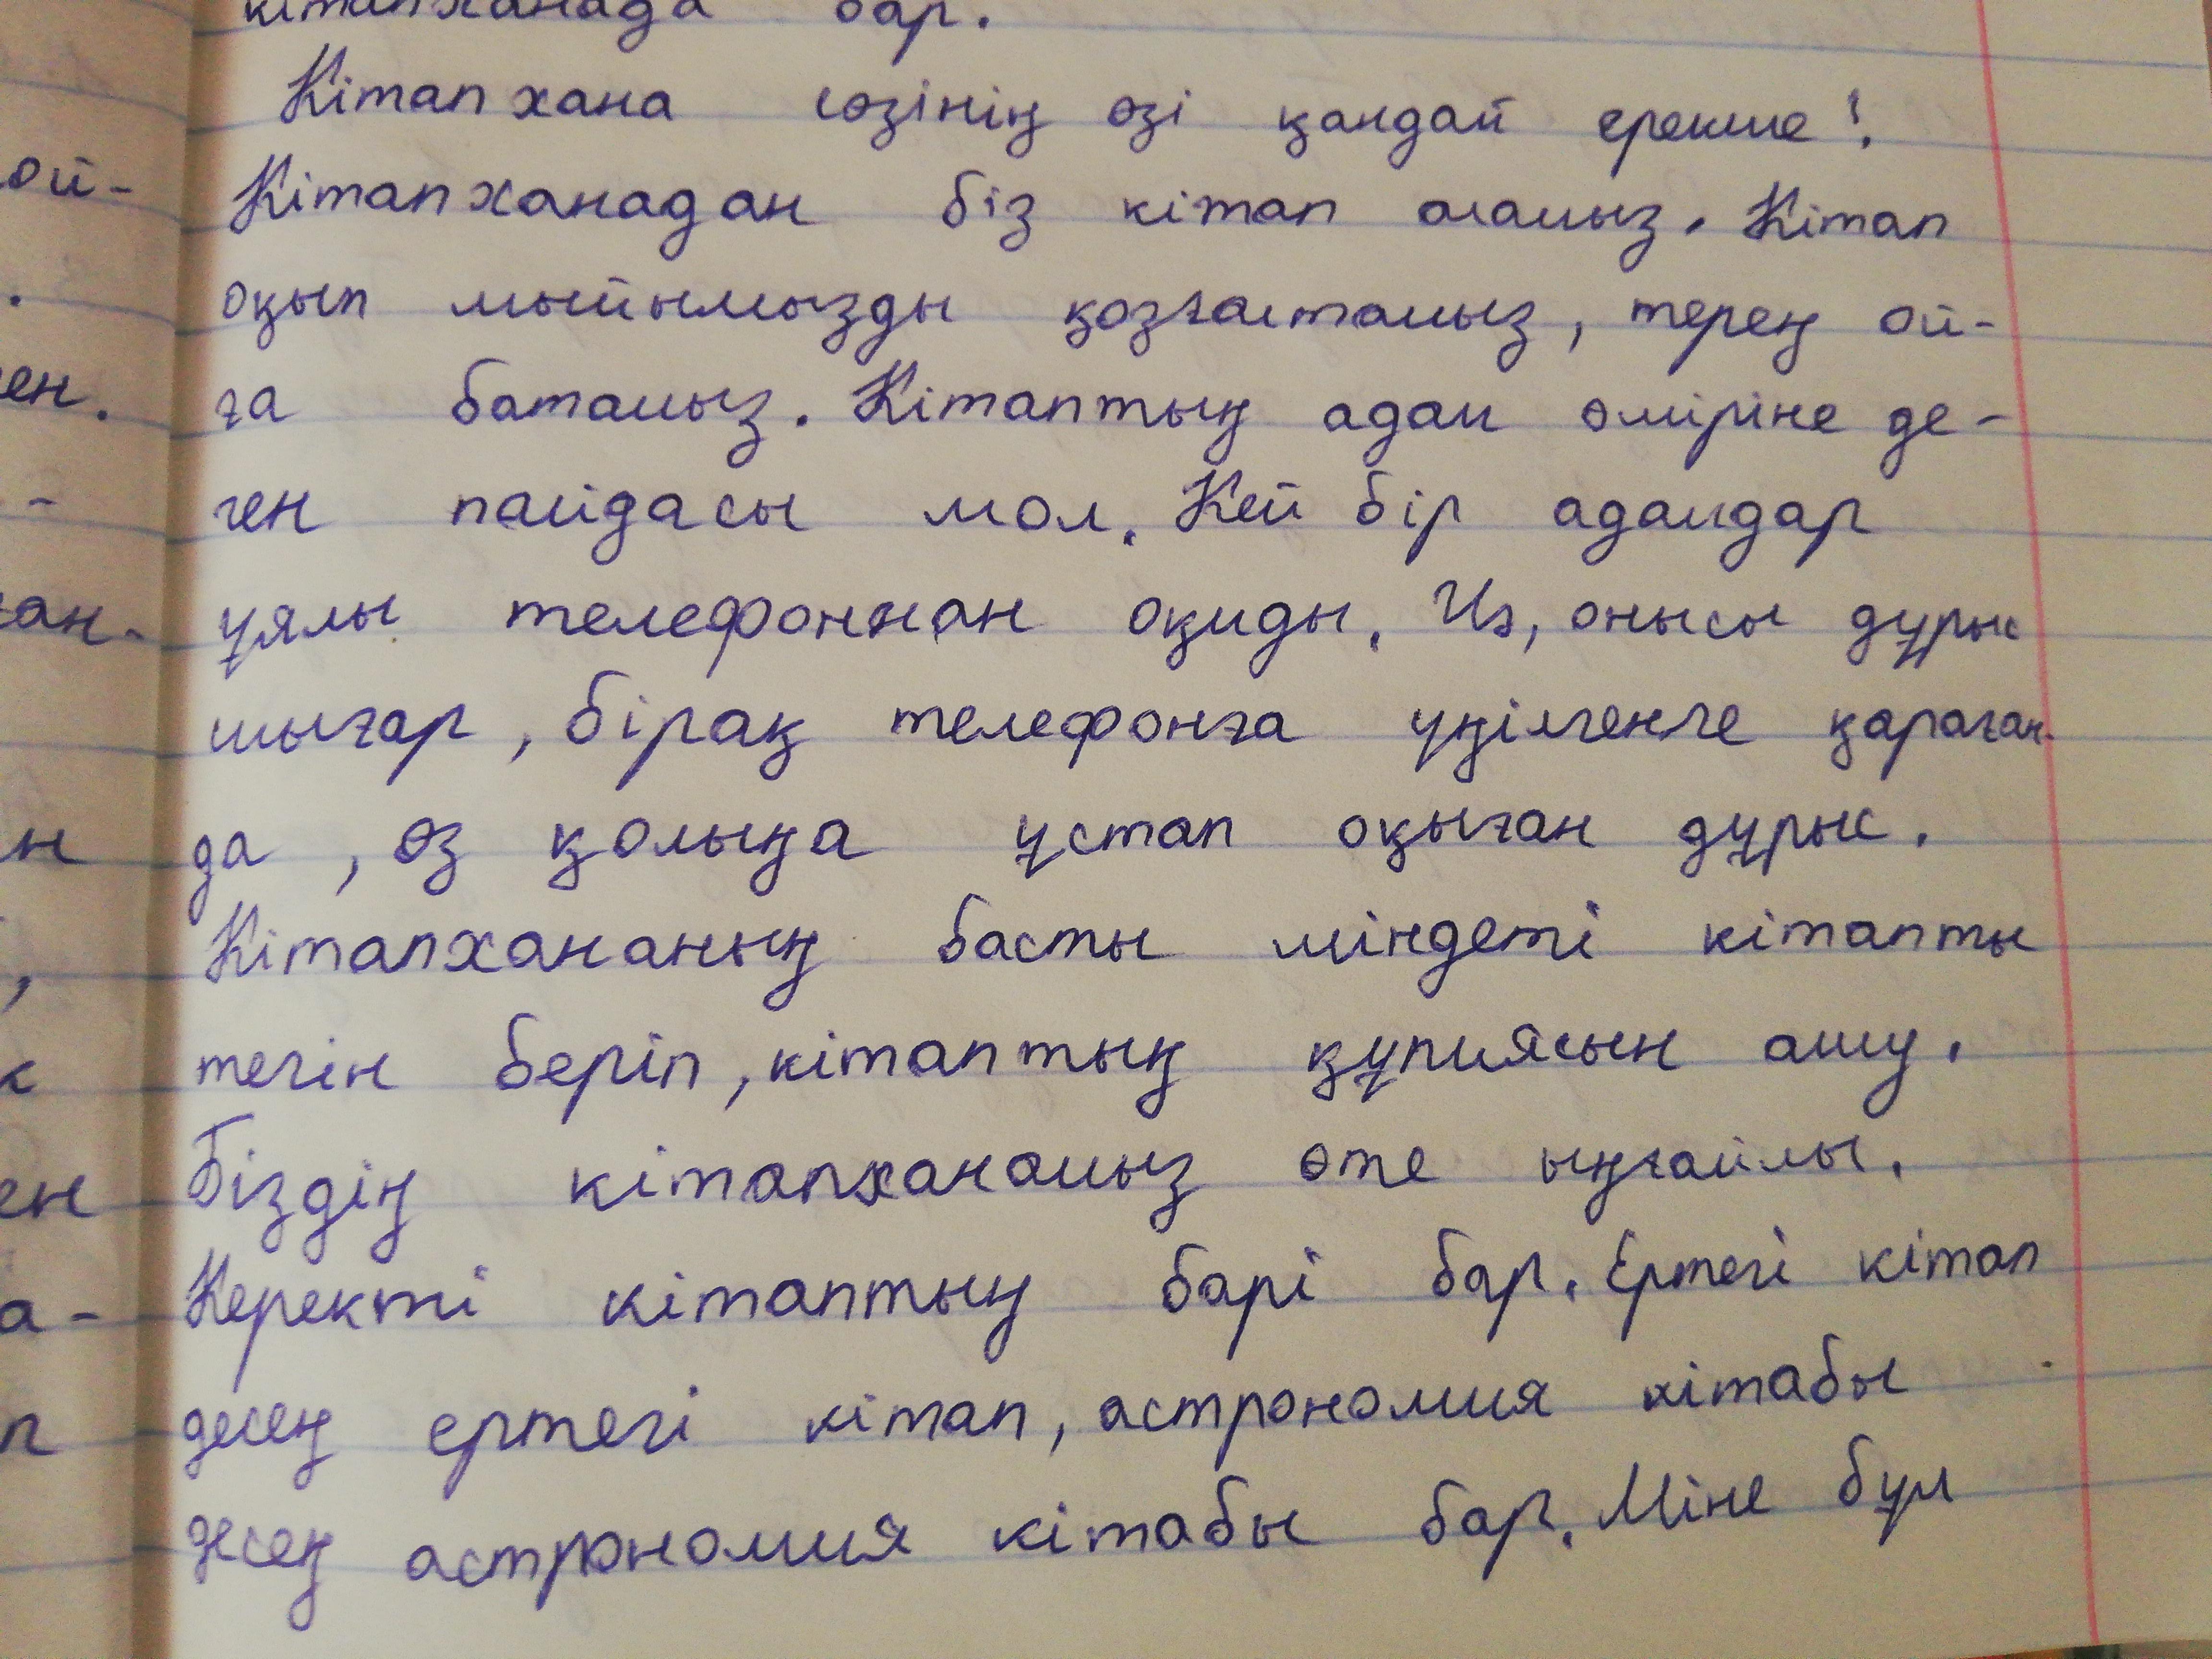 кітапханада бар.
Кітапхана сөзінің өзі қандай ерекше!
Кітапханадан біз кітап аламыз. Кітап
оқып мыйымызды қозғалтамыз, терең ой-
ға батамыз. Кітаптың адам өміріне де-
ген пайдасы мол. Кей бір адамдар
ұялы телефоннан оқиды. Иә, онысы дұрыс
шығар, бірақ телефонға үңілгенге қараған-
да, өз қолыңа ұстап оқыған дұрыс.
Кітапхананың басты міндеті кітапты
тегін беріп, кітаптың құпиясын ашу.
Біздің кітапханамыз өте ыңғайлы.
Керекті кітаптың бәрі бар. Ертегі кітап
десең ертегі кітап, астрономия кітабы
десең астрономия кітабы бар. Міне бұл